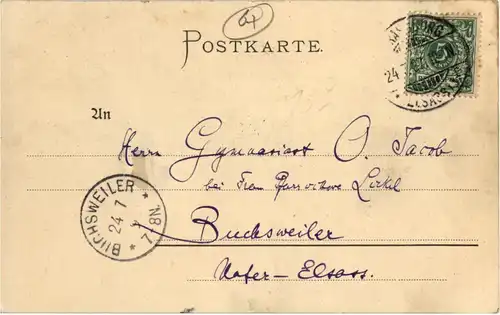 64
POSTKARTE.
24
5
ELSASS
An
Herrn Gymnasiast O. Jacob
bei Frau Pfarrwitwe
BUCHSWEILER
24 7
7-8N.
Buchsweiler
Unter-Elsass.